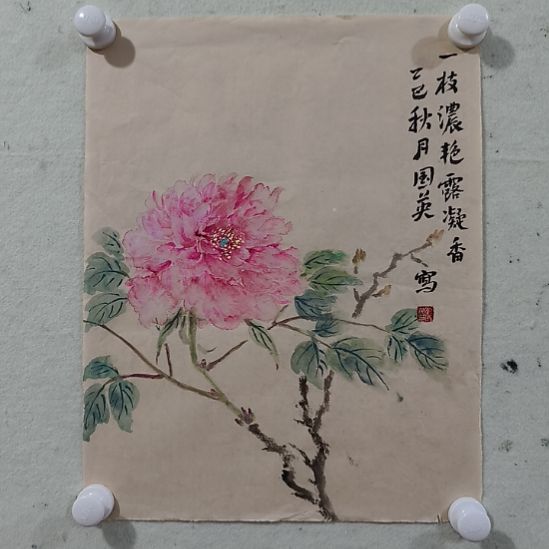 一枝濃艳露凝香
乙巳秋月国英
写